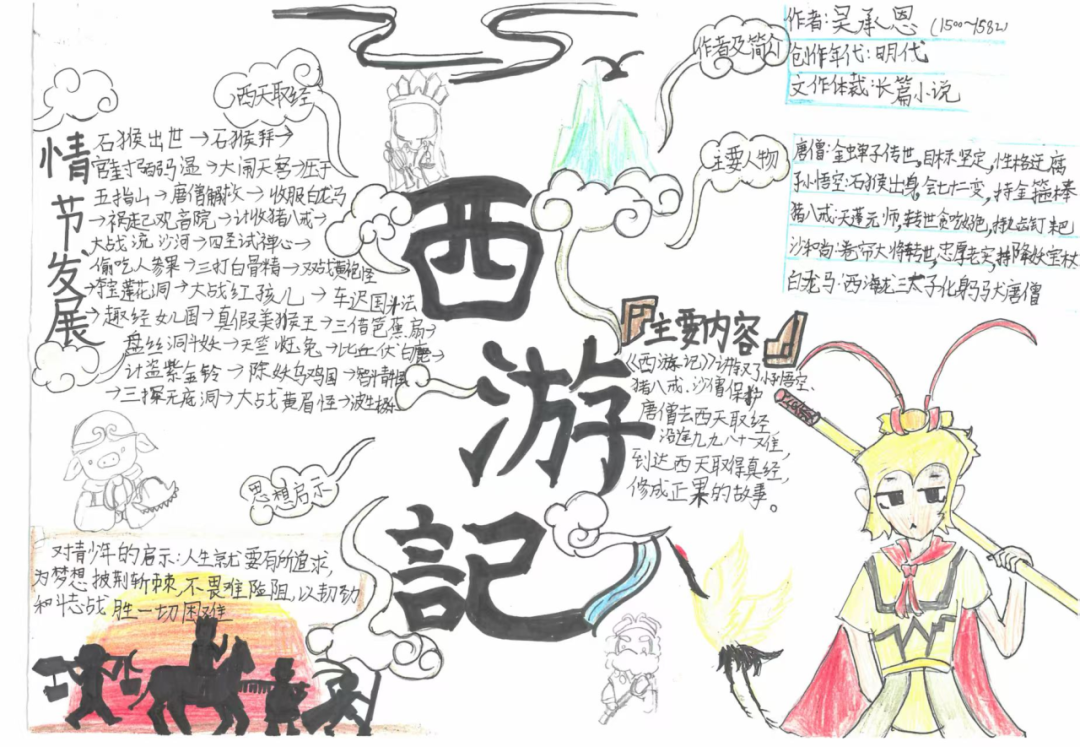 西游記
作者及简介
作者:吴承恩(1500~1582)
创作年代:明代
文作体裁:长篇小说
主要人物
唐僧:金蝉子传世,目标坚定,性格迂腐
孙悟空:石猴出身,会七十二变,持金箍棒
猪八戒:天蓬元帅,转世贪吃
沙和尚:卷帘大将转世,忠厚老实,持降妖宝杖
白龙马:西海龙三太子化身马
主要内容
《西游记》讲叙了孙悟空、
猪八戒、沙僧保护
唐僧去西天取经
沿途九九八十一难,
到达西天取得真经,
修成正果的故事。
西天取经
情节发展
石猴出世→石猴拜→
官封弼马温→大闹天宫→压于
五指山→唐僧解救→收服白龙马
→祸起观音院→计收猪八戒→
大战流沙河→四圣试禅心→
偷吃人参果→三打白骨精→对战黄袍怪
→夺宝莲花洞→大战红孩儿→车迟国斗法
→趣经女儿国→真假美猴王→三借芭蕉扇→
盘丝洞斗妖→天竺收玉兔→
计盗紫金铃→除妖乌鸡国→
→三探无底洞→大战黄眉怪→
思想启示
对青少年的启示:人生就要有所追求,
为梦想披荆斩棘,不畏难险阻,以韧劲
和斗志战胜一切困难